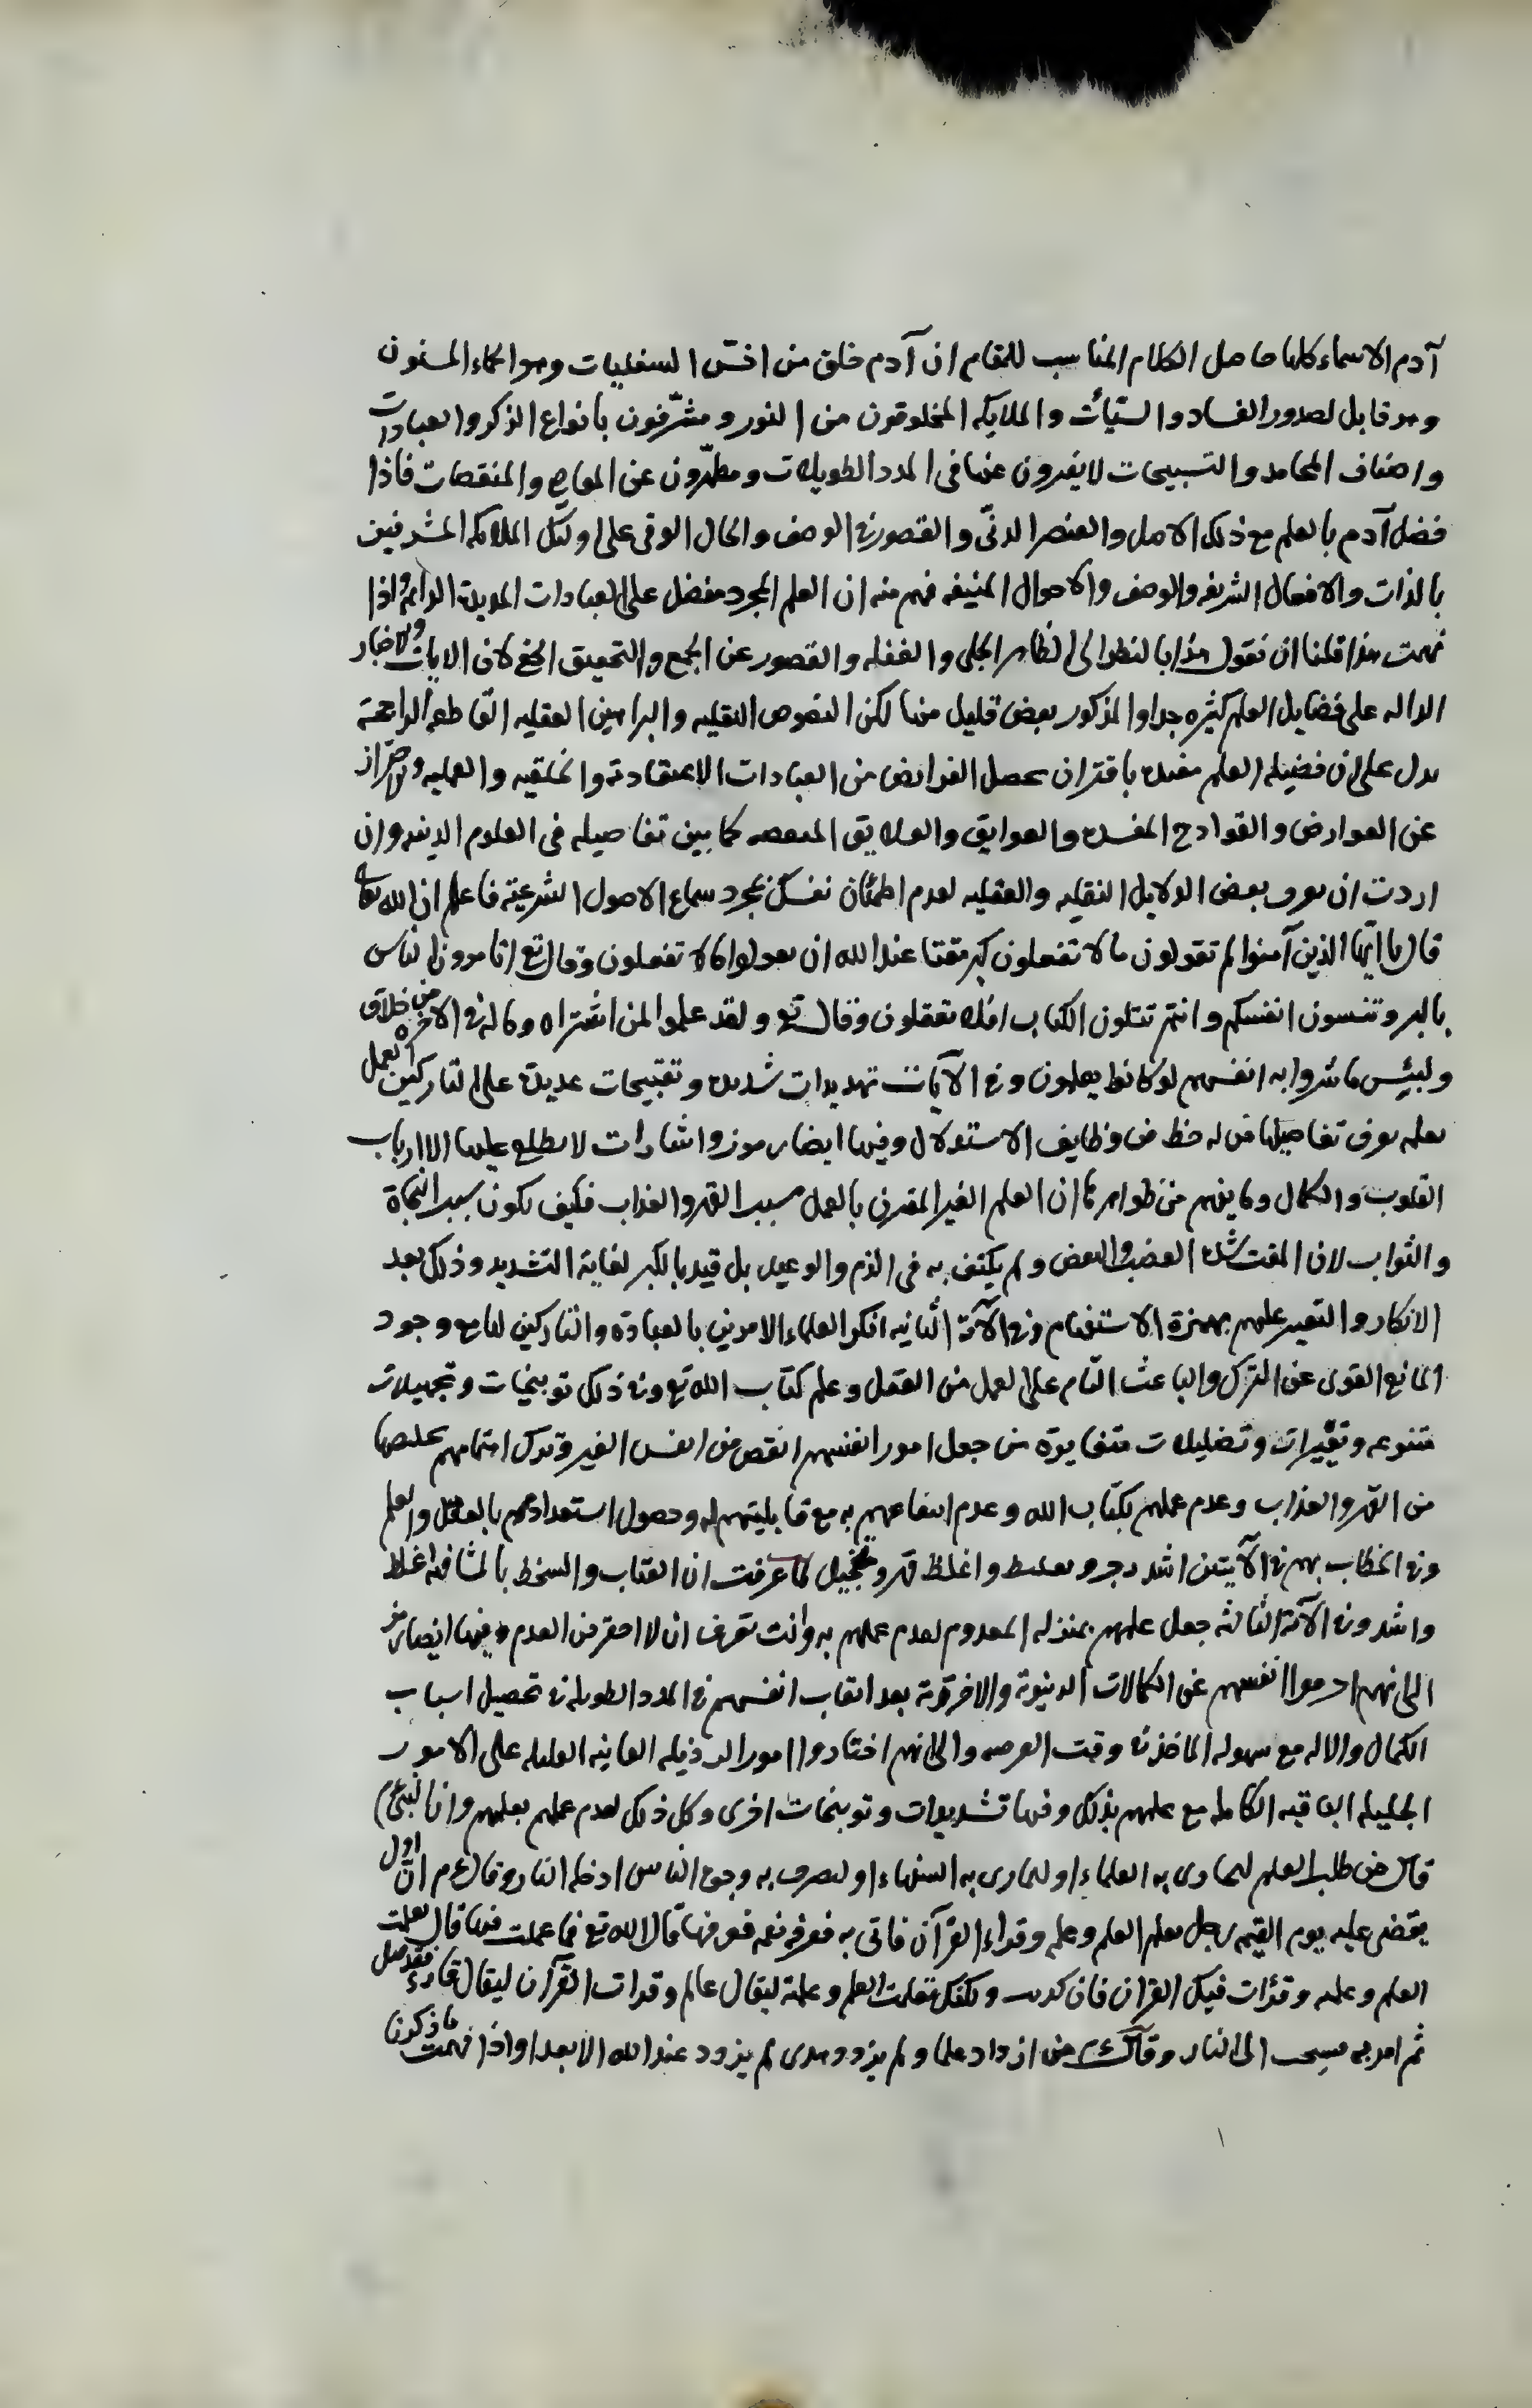 آدم الاسماء كلها حاصل الكلام المناسب للمقام ان آدم خلق من اخسّ السفليات وهو الحماء المسنون
وهو قابل لصدور الفساد والسيّأت والملايكه المخلوقون من النور ومشرّفون بانواع الذكر والعبادات
واصناف المحامد والتسبيحات لا يفترون عنها فى المدد الطويلات ومطهّرون عن المعاصى والمنقصات فاذا
فضل آدم بالعلم مع ذلك الاصل والعنصر الدنىّ والقصور فى الوصف والحال الوقى على اولئك الملائكه المشرفين
بالذات والافعال الشريفه والوصف والاحوال المنيفه فهم منه ان العلم المجرد مفضل على العبادات المديدة الدائمة واذا
فهمت هذا قلنا ان نقول هذا بالنظر الى الظاهر الجلى والغفله والقصور عن الجمع والتحقيق الخفى لان الايات والاخبار
الداله على فضايل العلم كثيره جدا والمذكور بعض قليل منها لكن النصوص النقليه والبراهين العقليه القاطعه الواضحة
يدل على ان فضيله العلم مقيده باقتران تحصل الفرائض من العبادات الاعتقادية والخلقيه والعمليه والاحتراز
عن العوارض والقوادح المفسده والعوايق والعلايق المنقصه كما بين تفاصيله فى العلوم الدينيه وان
اردت ان تعرف بعض الدلايل النقليه والعقليه لعدم اطمئنان نفسك بمجرد سماع الاصول الشرعية فاعلم ان الله تعالى
قال يا ايها الذين آمنوا لم تقولون ما لا تفعلون كبر مقتا عند الله ان تقولوا ما لا تفعلون وقال تع اتامرون الناس
بالبر وتنسون انفسكم وانتم تتلون الكتاب افلا تعقلون وقال تع ولقد علموا لمن اشتراه وماله فى الاخره من خلاق
ولبئس ما شروا به انفسهم لو كانوا يعلمون وفى الآيات تهديدات شديده وتقبيحات عديدة على التاركين العمل
بعلمه يعرف تفاصيلها من له حظ من وظايف الاستدلال وفيها ايضا رموز واشارات لا يطلع عليها الا ارباب
القلوب والكمال وما يفهم من ظواهرها ان العلم الغير المقترن بالعمل سبب القهر والعذاب فكيف يكون سبب النجاة
والثواب لان المقت شده الغضب والبغض ولم يكتف به فى الذم والوعيد بل قيد بالكبر لغاية التشديد وذلك بعد
الانكار والتعيير عليهم بهمزة الاستفهام وفى الآية الثانيه انكر العلماء الامرين بالعبادة والتاركين لها مع وجود
المانع القوى عن الترك والباعث التام على العمل من العقل وعلم كتاب الله تع وفى ذلك توبيخات وتجهيلات
متنوعه وتعييرات وتضليلات متغايرة من جعل امور انفسهم انقص من انفس الغير وترك اهتمامهم تخليصها
من القهر والعذاب وعدم عملهم بكتاب الله وعدم انتفاعهم به مع قابليتهم له وحصول استعدادهم بالعقل والعلم
وفى الخطاب بهم فى الآيتين اشد زجر وتغليظ واغلظ قهر وتخجيل لما عرفت ان العتاب والسخط بالمشافهة اغلظ
واشد وفى الآية الثالثه جعل علمهم بمنزله المعدوم لعدم عملهم به وانت تعرف ان لا احقر من العدم وفيها ايضا رمز
الى انهم احرموا انفسهم عن الكمالات الدنيوية والاخروية بعد اتعاب انفسهم فى المدد الطويله فى تحصيل اسباب
الكمال والاله مع سهوله الماخذ فى وقت الفرصه والى انهم اختاروا امور الرذيله الفانيه القليله على الامور
الجليله الباقيه الكامله مع علمهم بذلك وفيها تشديدات وتوبيخات اخرى وكل ذلك لعدم عملهم بعلمهم وان النبى عم
قال من طلب العلم ليجارى به العلماء او ليمارى به السفهاء او ليصرف به وجوه الناس ادخله النار وقال عم ان اول
يقضى عليه يوم القيمه رجل تعلم العلم وعلمه وقراء القرآن فاتى به فعرفه نعمه فعرفها قال الله تع فما عملت فيها قال تعلمت
العلم وعلمته وقرات فيك القران قال كذبت ولكنك تعلمت العلم وعلمته ليقال عالم وقرات القرآن ليقال قارء فقد قيل
ثم امر به فسحب الى النار وقال عم من ازداد علما ولم يزدد هدى لم يزدد عند الله الا بعدا واذا فهمت ما ذكرنا